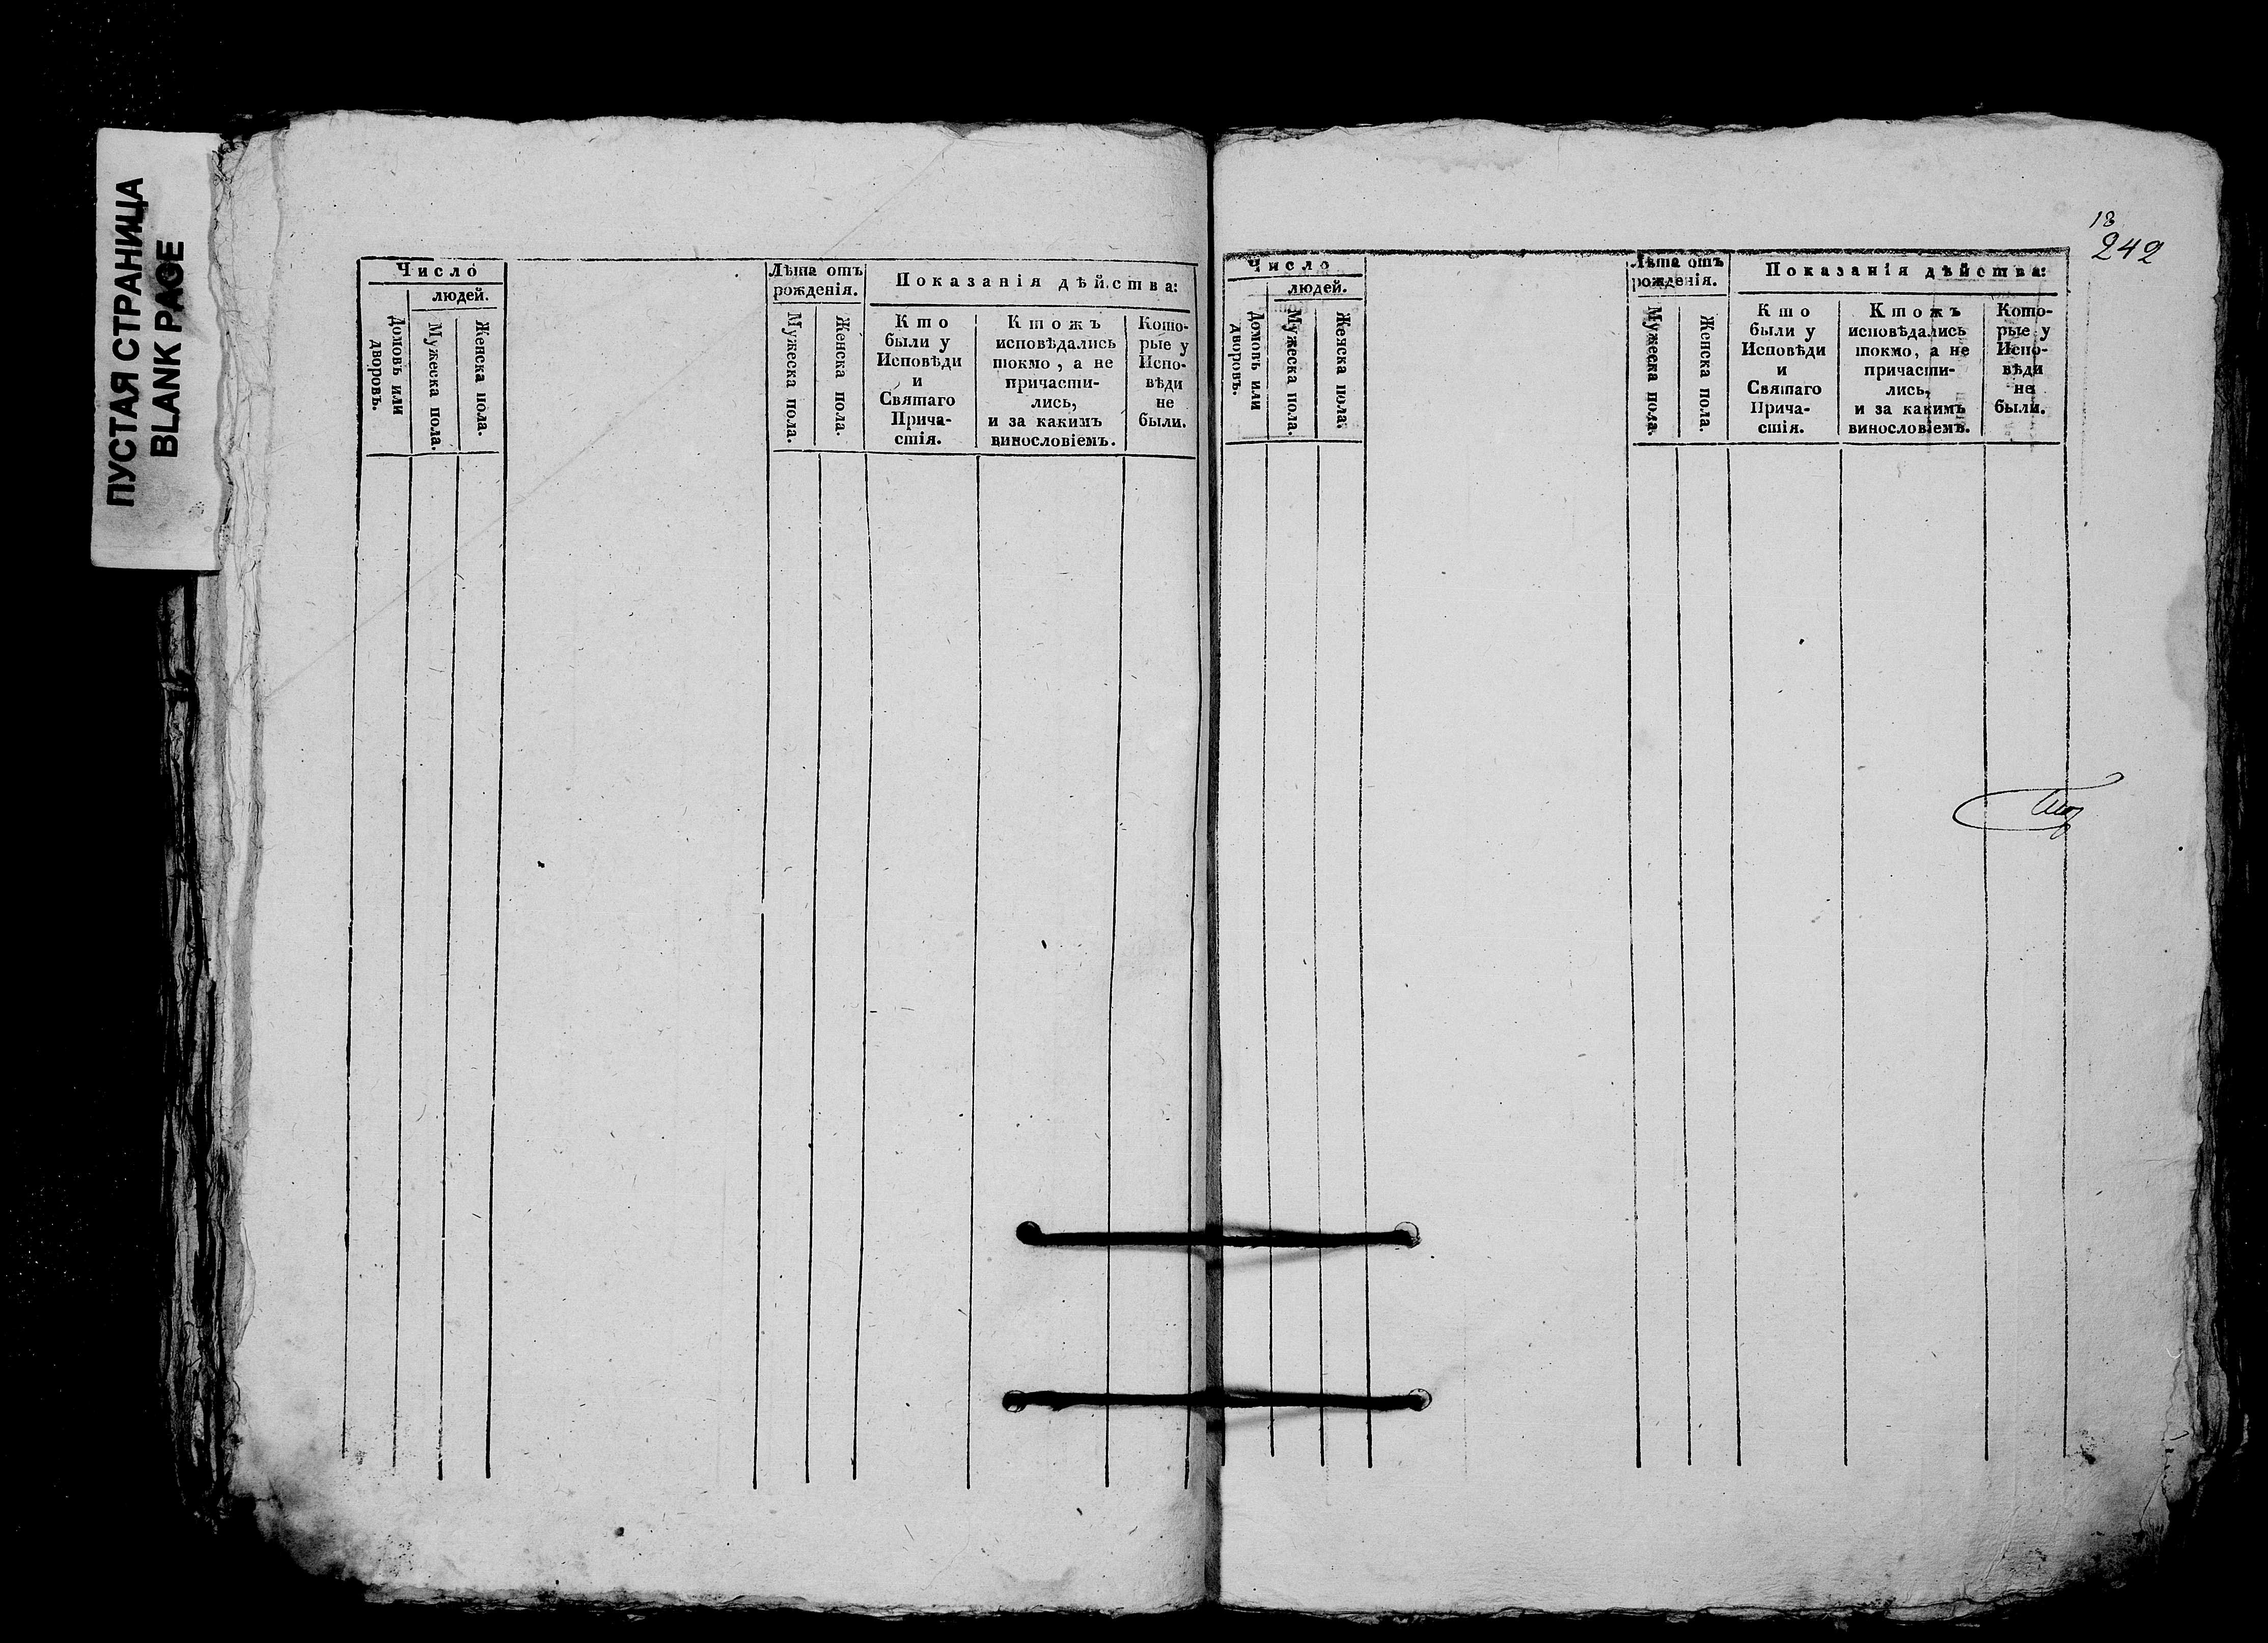 ПУСТАЯ СТРАНИЦА
BLANK PAGE
Число
людей.
Домовъ или
дворовъ.
Мужеска пола.
Женска пола.
Лѣта отъ
рожденія.
Мужеска пола.
Женска пола.
Показанія дѣйства:
Кто
были у
Исповѣди
и
Святаго
Прича-
стія.
Ктожъ
исповѣдались
токмо, а не
причасти-
лись,
и за какимъ
винословіемъ.
Кото-
рые у
Испо-
вѣди
не
были.
13
242
Число
людей.
Домовъ или
дворовъ.
Мужеска пола.
Женска пола.
Лѣта отъ
рожденія.
Мужеска пола.
Женска пола.
Показанія дѣйства:
Кто
были у
Исповѣди
и
Святаго
Прича-
стія.
Ктожъ
исповѣдались
токмо, а не
причасти-
лись,
и за какимъ
винословіемъ.
Кото-
рые у
Испо-
вѣди
не
были.